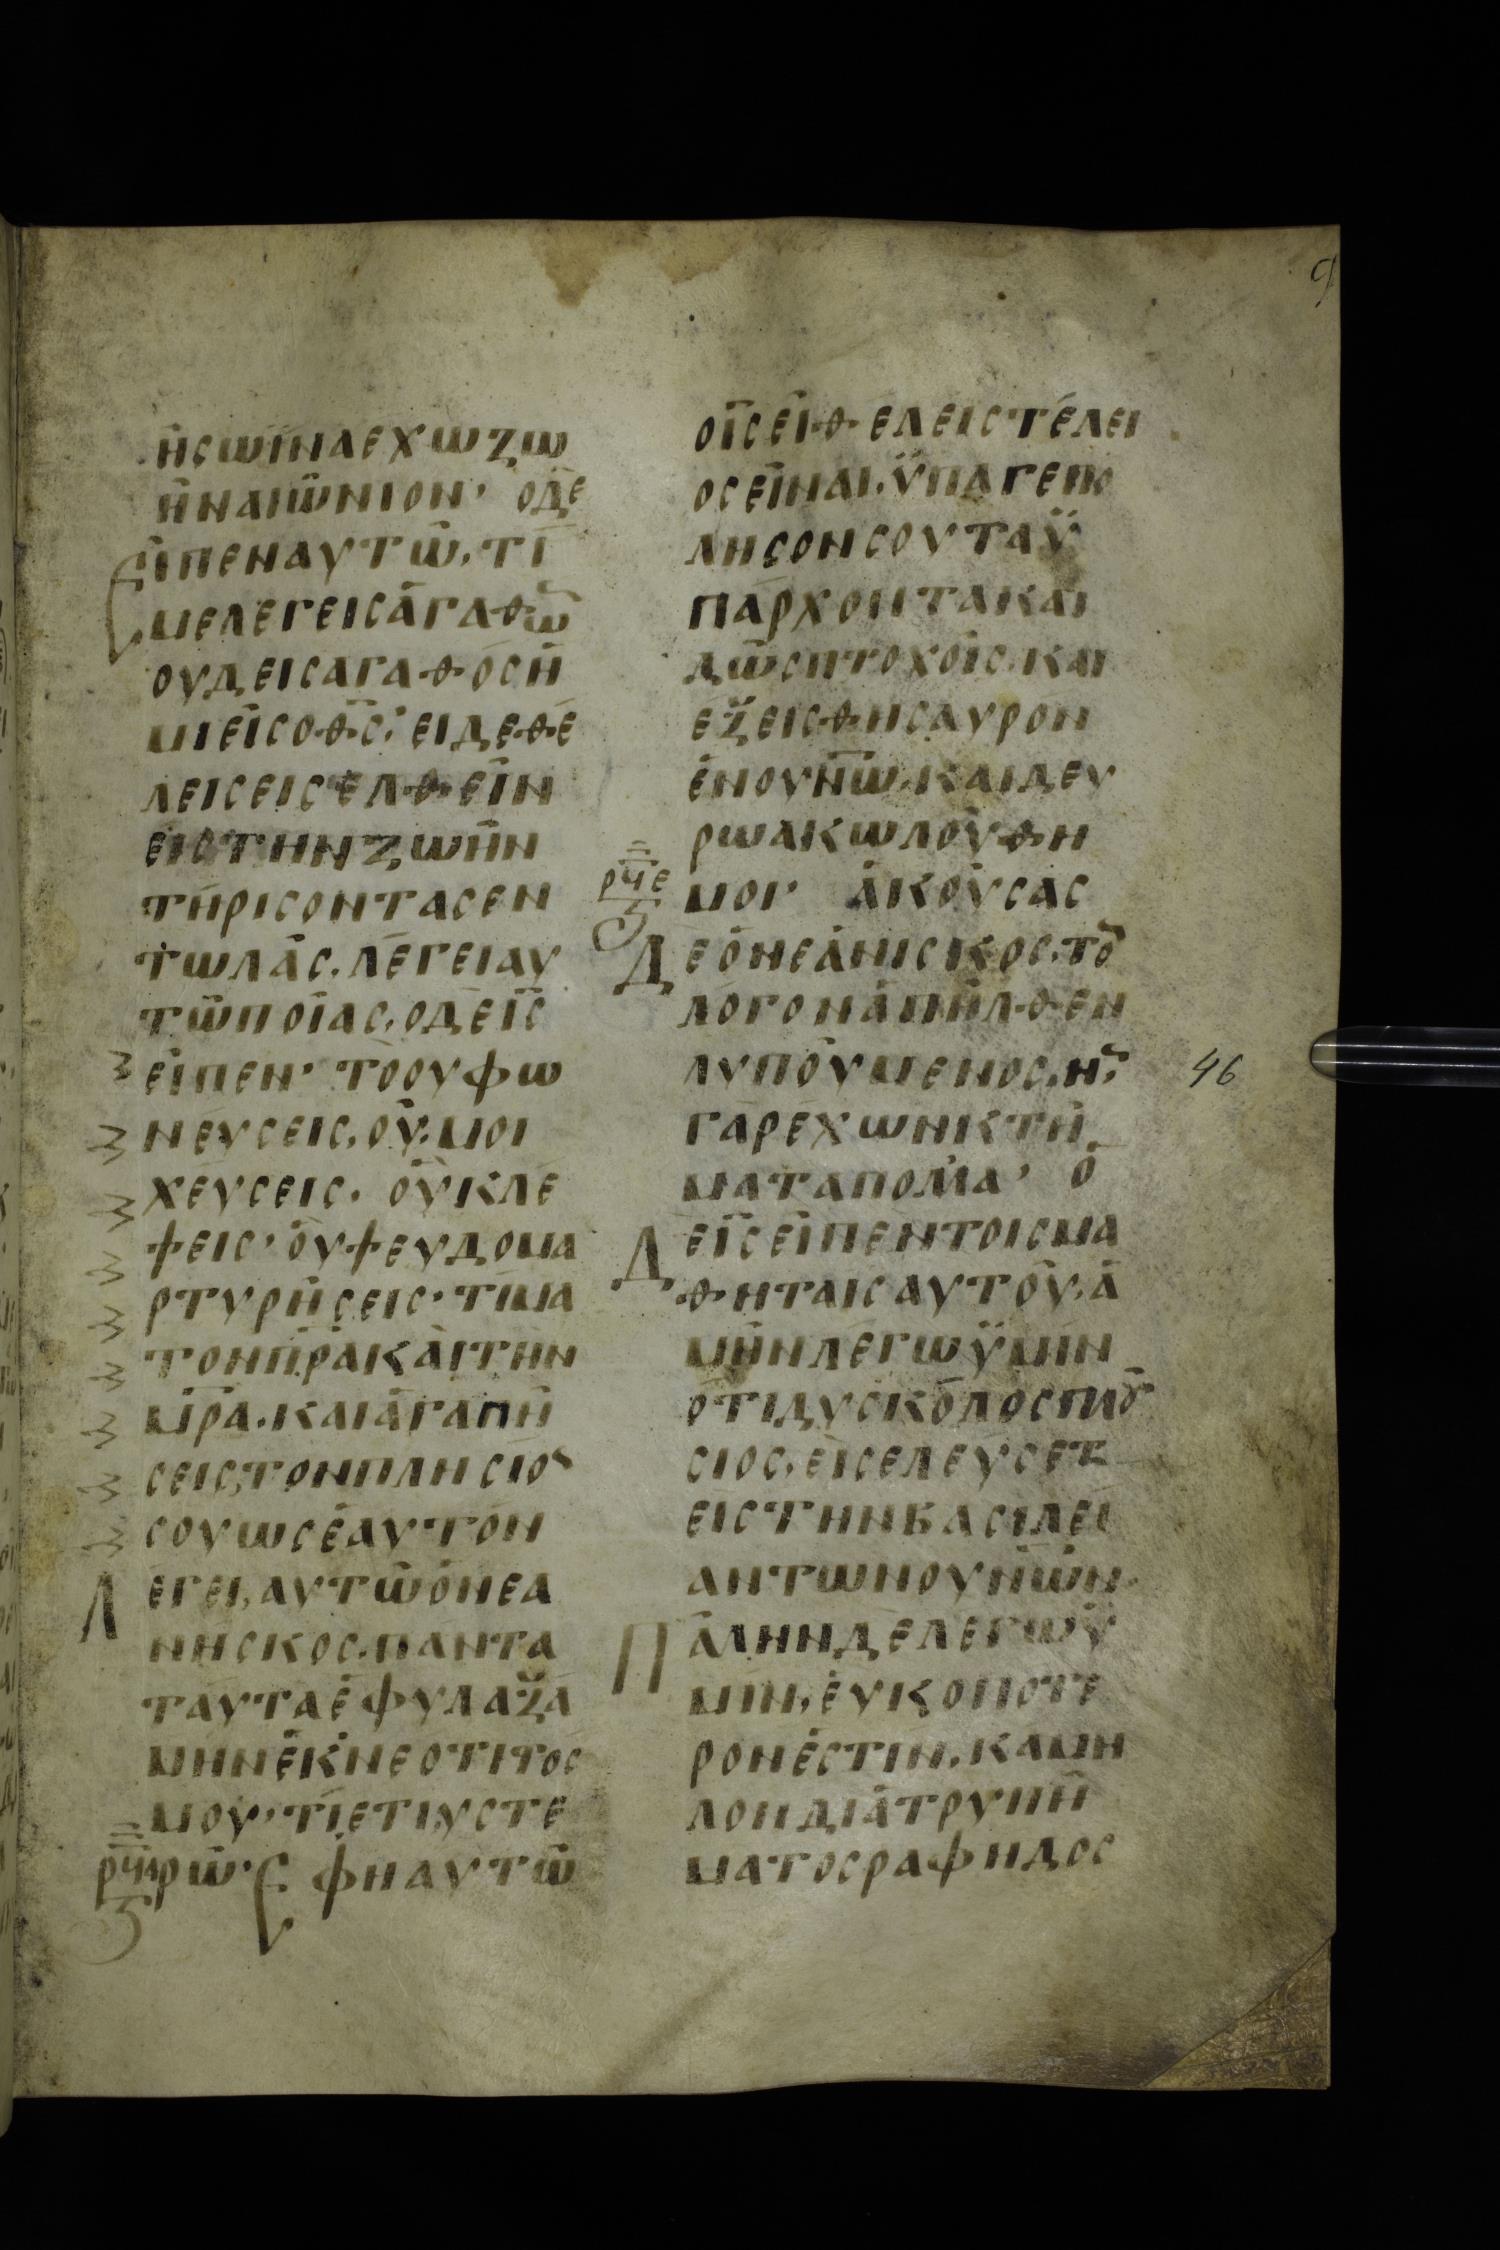 ηςωϊναεχωζω
ηναιωνιον· οδε
ειπεναυτω, τι
μελεγεισαγαθω
ουδεισαγαθοση
μιεισοθς· ειδεθε
λεισεισελθειν
ειστηνζωην
τηρισοντασεν
τωλας. λεγειαυ
τωποιας, οδεις
ειπεν· τοουφω
νευσεις, ου, μοι
χευσεις. ουκλε
ψεις· ουψευδομα
ρτυρησεις· τιμα
τονπρακαιτην
μρα. καιαγαπη
σεις, τονπλησιο
σουωσεαυτον
Λεγει, αυτωονεα
νησκος. παντα
ταυταεφυλαξα
μηνεκνεοτιτος
μου· τιετι, υστε
ρϟδ
ρω· Εφηαυτω
οισειθελειςτελει
οσειναι, ϋπαγεπω
λησονσουταϋ
παρχοντακαι
δωςπτοχοις. και
εξειςθησαυρον
ενουνω, καιδευ
ρωακωλουθη
ρϟε
μοι· ακουσας
Δεονεανισκος, το
λογοναπηλθεν
λυπουμενος, ην
γαρεχωνκτη
ματαπολλα· ο
Δεισειπεντοισμα
θηταισαυτου, α
μηνλεγωϋμιν
οτιδυσκολοσπλου
σιος, εισελευσεται
ειστηνβασιλει
αντωνουνων.
Παληνδελεγωϋ
μιν, ευκοποτε
ρονεστιν, καμη
λονδιατρυπη
ματοσραφηδος
46
9